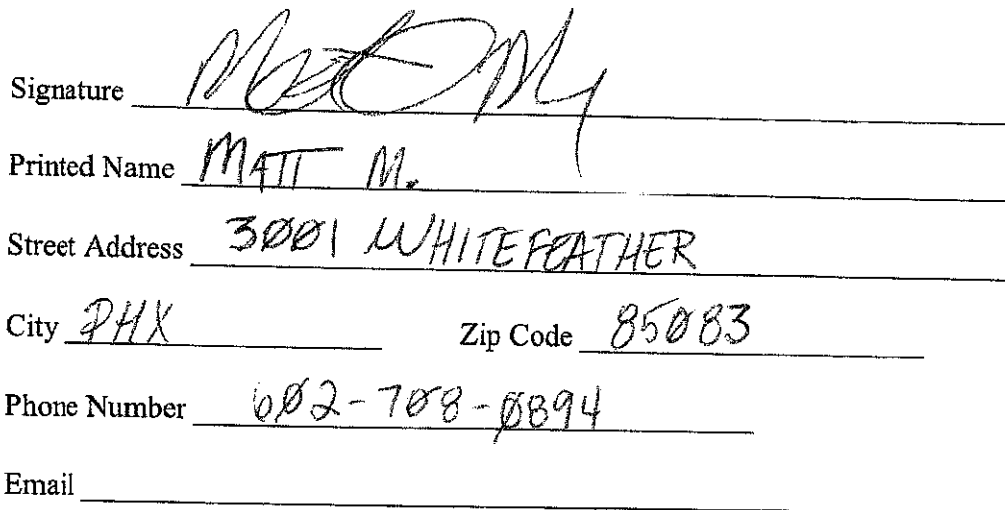 Signature
Printed Name MATT M.
Street Address 3001 WHITEFEATHER
City PHX Zip Code 85083
Phone Number 602-708-0894
Email